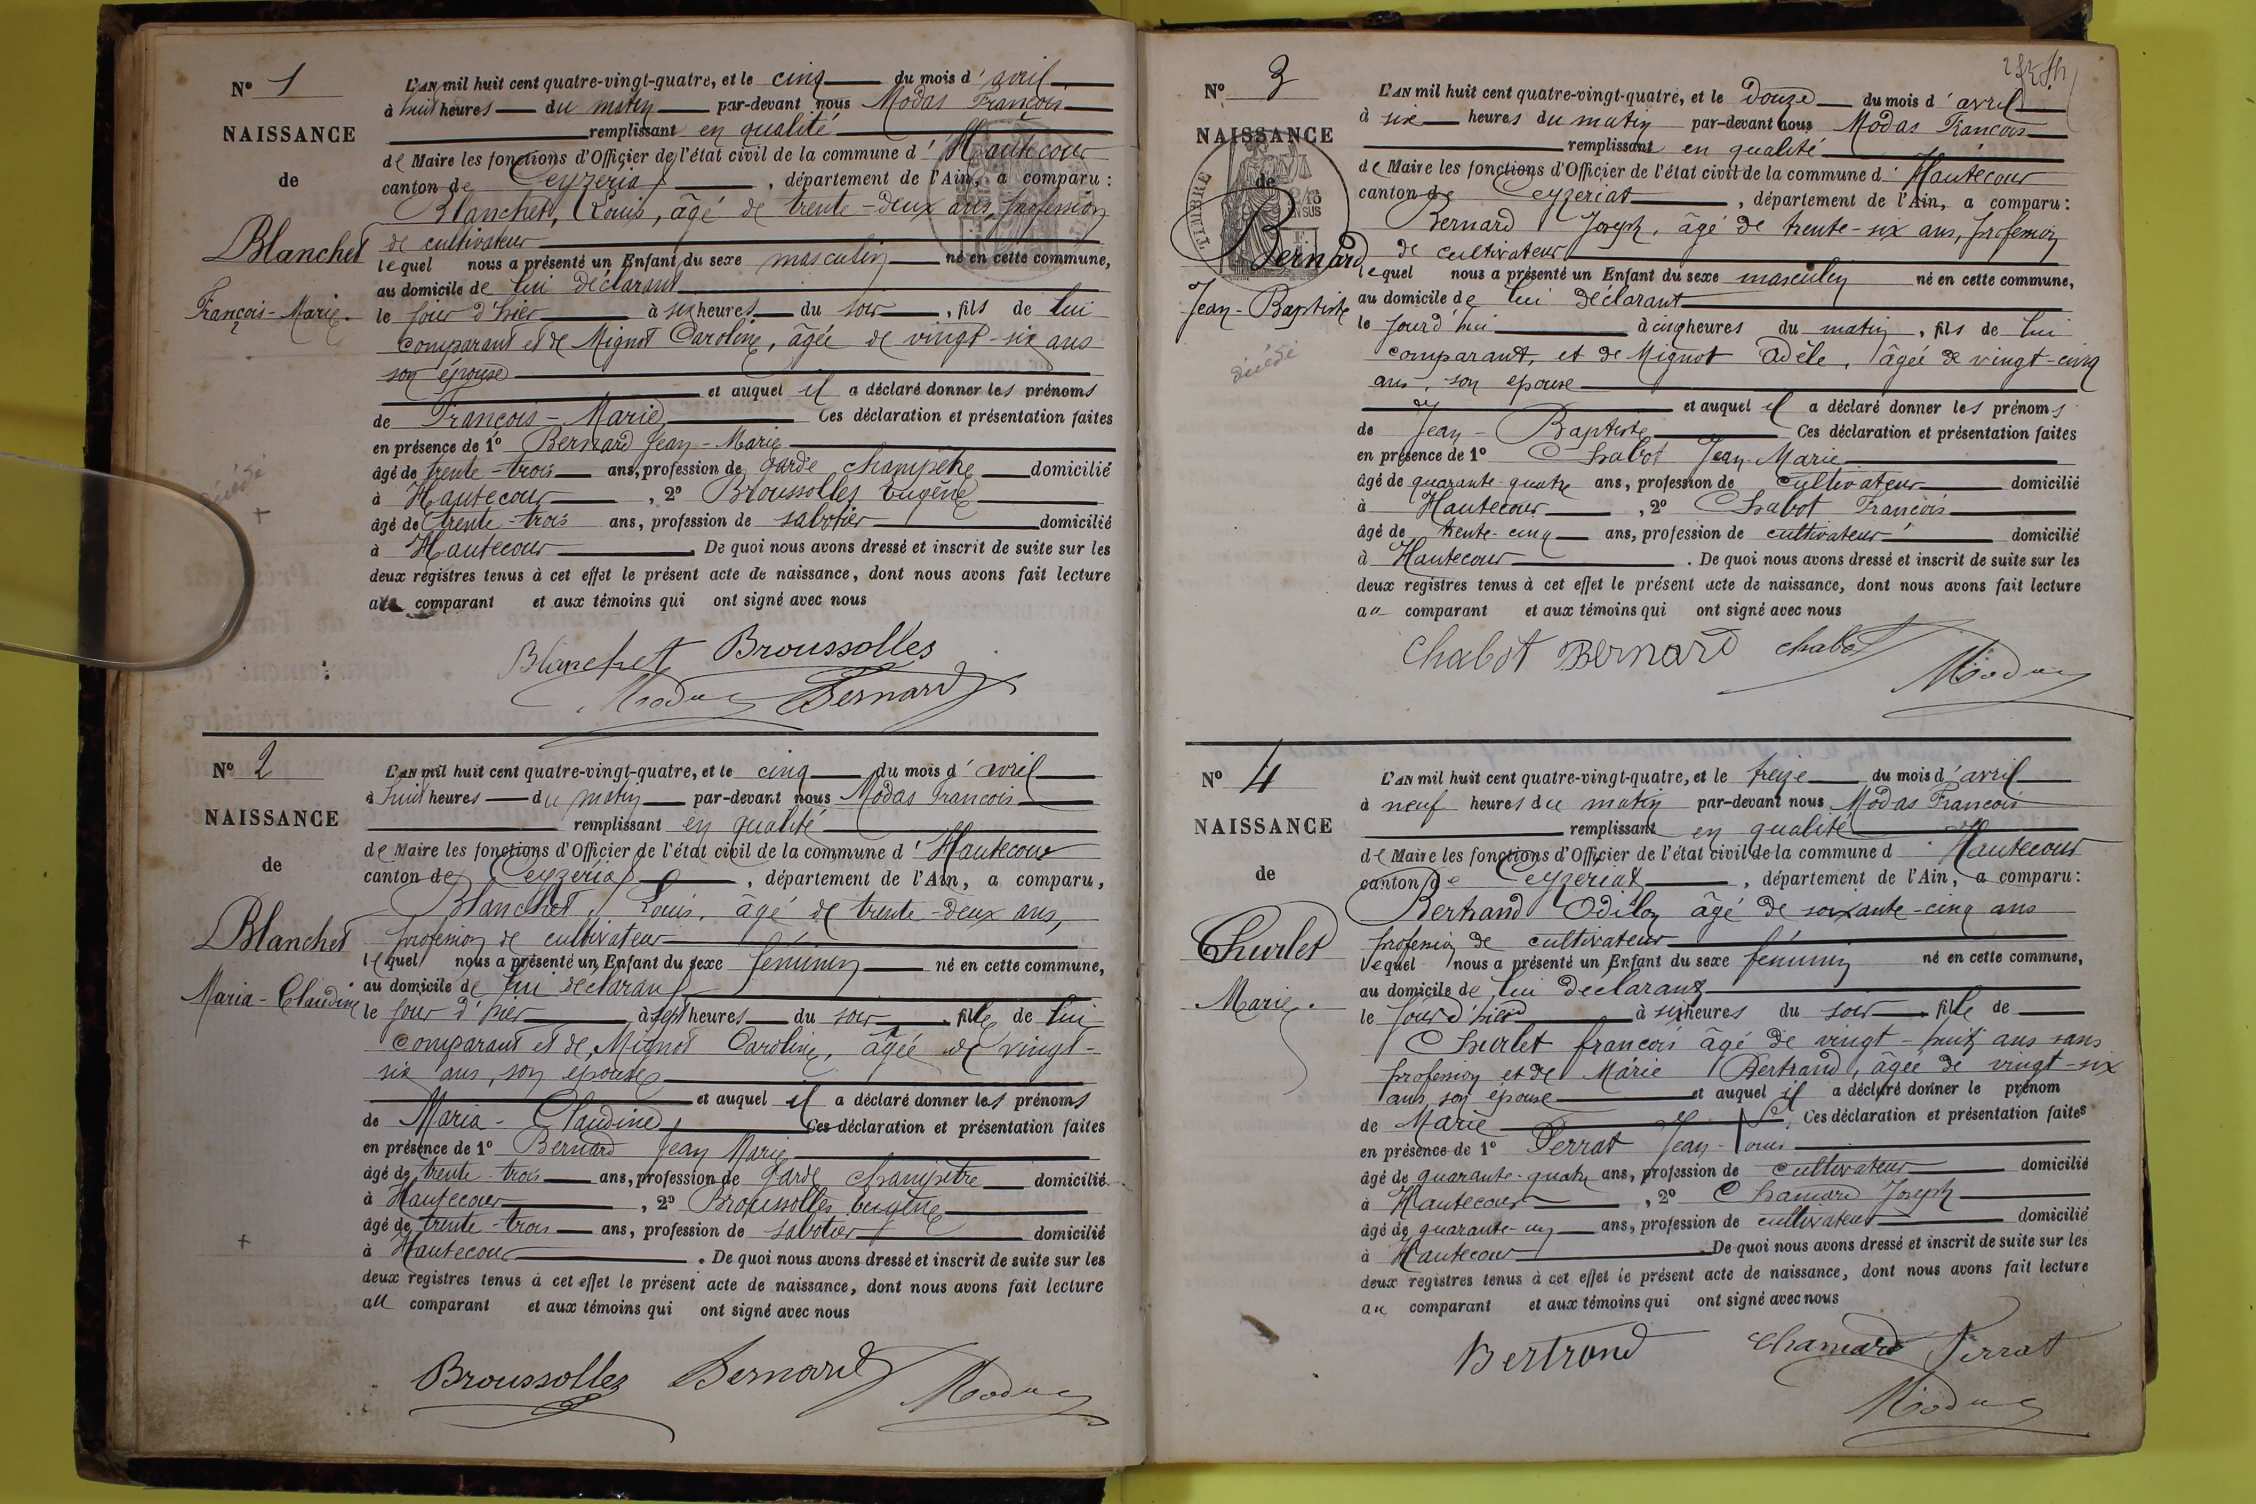 Nº 1
NAISSANCE
de
Blanchet
François-Marie.
décédé
L'AN mil huit cent quatre-vingt-quatre, et le cinq du mois d'avril
à huit heures du matin par-devant nous Modas François
remplissant en qualité
de Maire les fonctions d'Officier de l'état civil de la commune d'Hautecour
canton de Ceyzériat, département de l'Ain, a comparu :
Blanchet, Louis, âgé de trente-deux ans, profession
de cultivateur
lequel nous a présenté un Enfant du sexe masculin né en cette commune,
au domicile de lui déclarant
le jour d'hier à six heures du soir, fils de lui
comparant et de Mignot Caroline, âgée de vingt-six ans
son épouse
et auquel il a déclaré donner les prénoms
de François-Marie Ces déclaration et présentation faites
en présence de 1º Bernard Jean-Marie
âgé de trente-trois ans, profession de garde champêtre domicilié
à Hautecour, 2º Broussolles Eugène
âgé de trente-trois ans, profession de sabotier domicilié
à Hautecour. De quoi nous avons dressé et inscrit de suite sur les
deux registres tenus à cet effet le présent acte de naissance, dont nous avons fait lecture
au comparant et aux témoins qui ont signé avec nous
Blanchet Broussolles
Modas Bernard
Nº 2
NAISSANCE
de
Blanchet
Maria-Claudine
L'AN mil huit cent quatre-vingt-quatre, et le cinq du mois d'avril
à huit heures du matin par-devant nous Modas François
remplissant en qualité
de Maire les fonctions d'Officier de l'état civil de la commune d'Hautecour
canton de Ceyzériat, département de l'Ain, a comparu,
Blanchet, Louis, âgé de trente-deux ans,
profession de cultivateur
lequel nous a présenté un Enfant du sexe féminin né en cette commune,
au domicile de lui déclarant
le jour d'hier à sept heures du soir, fille de lui
comparant et de Mignot Caroline, âgée de vingt-
six ans, son épouse
et auquel il a déclaré donner les prénoms
de Maria-Claudine, Ces déclaration et présentation faites
en présence de 1º Bernard Jean Marie
âgé de trente-trois ans, profession de garde champêtre domicilié
à Hautecour, 2º Broussolles Eugène
âgé de trente-trois ans, profession de sabotier domicilié
à Hautecour. De quoi nous avons dressé et inscrit de suite sur les
deux registres tenus à cet effet le présent acte de naissance, dont nous avons fait lecture
au comparant et aux témoins qui ont signé avec nous
Broussolles Bernard Modas
Nº 3
NAISSANCE
de
TIMBRE
Bernard
Jean-Baptiste
décédé
L'AN mil huit cent quatre-vingt-quatre, et le douze du mois d'avril
à six heures du matin par-devant nous Modas François
remplissant en qualité
de Maire les fonctions d'Officier de l'état civil de la commune d'Hautecour
canton de Ceyzeriat, département de l'Ain, a comparu :
Bernard Joseph, âgé de trente-six ans, profession
de cultivateur
lequel nous a présenté un Enfant du sexe masculin né en cette commune,
au domicile de lui déclarant
le jourd'hui à cinq heures du matin, fils de lui
comparant, et de Mignot Adèle, âgée de vingt-cinq
ans, son épouse
et auquel il a déclaré donner les prénoms
de Jean-Baptiste Ces déclaration et présentation faites
en présence de 1º Chabot Jean-Marie
âgé de quarante-quatre ans, profession de cultivateur domicilié
à Hautecour, 2º Chabot François
âgé de trente-cinq ans, profession de cultivateur domicilié
à Hautecour. De quoi nous avons dressé et inscrit de suite sur les
deux registres tenus à cet effet le présent acte de naissance, dont nous avons fait lecture
au comparant et aux témoins qui ont signé avec nous
Chabot Bernard Chabot
Modas
Nº 4
NAISSANCE
de
Churlet
Marie.
L'AN mil huit cent quatre-vingt-quatre, et le treize du mois d'avril
à neuf heures du matin par-devant nous Modas François
remplissant en qualité
de Maire les fonctions d'Officier de l'état civil de la commune d'Hautecour
canton de Ceyzeriat, département de l'Ain, a comparu :
Bertrand Odilon âgé de soixante-cinq ans
profession de cultivateur
lequel nous a présenté un Enfant du sexe féminin né en cette commune,
au domicile de lui déclarant
le jour d'hier à six heures du soir, fille de
Churlet françois âgé de vingt-huit ans sans
profession et de Marie Bertrand, âgée de vingt-six
ans son épouse et auquel il a déclaré donner le prénom
de Marie Ces déclaration et présentation faites
en présence de 1º Perrat Jean-Louis
âgé de quarante-quatre ans, profession de cultivateur domicilié
à Hautecour, 2º Chamard Joseph
âgé de quarante-un ans, profession de cultivateur domicilié
à Hautecour. De quoi nous avons dressé et inscrit de suite sur les
deux registres tenus à cet effet le présent acte de naissance, dont nous avons fait lecture
au comparant et aux témoins qui ont signé avec nous
Bertrand Chamard Perrat
Modas